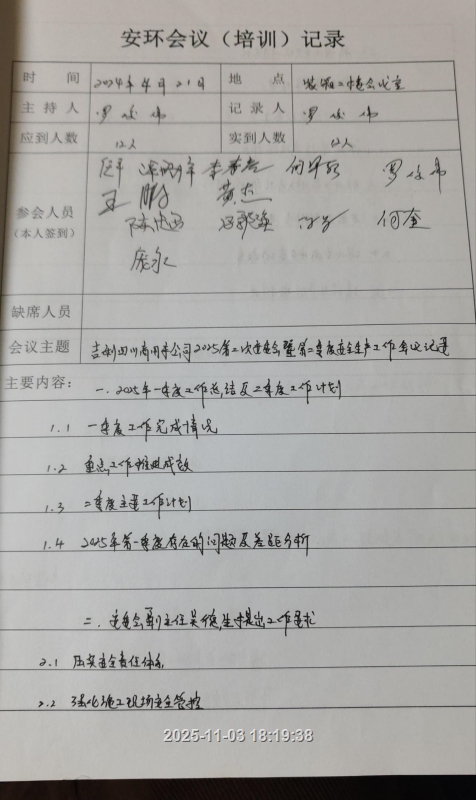 安环会议（培训）记录
时 间 2024年4月21日 地 点 装配工楼会议室
主 持 人 罗 伟 记 录 人 罗 伟
应到人数 12人 实到人数 12人
参会人员
（本人签到）
王鹏 黄杰
何奎
庞永
缺席人员
会议主题 吉利四川商用车公司2025第二次安委会暨第二季度安全生产工作会议记要
主要内容： 一.2025年一季度工作总结及二季度工作计划
1.1 一季度工作完成情况
1.2 重点工作推进成效
1.3 二季度主要工作计划
1.4 2025年第一季度存在的问题及差距分析
二.安委会副主任吴 提出工作要求
2.1 压实安全责任体系
2.2 强化施工现场安全管控
2025-11-03 18:19:38